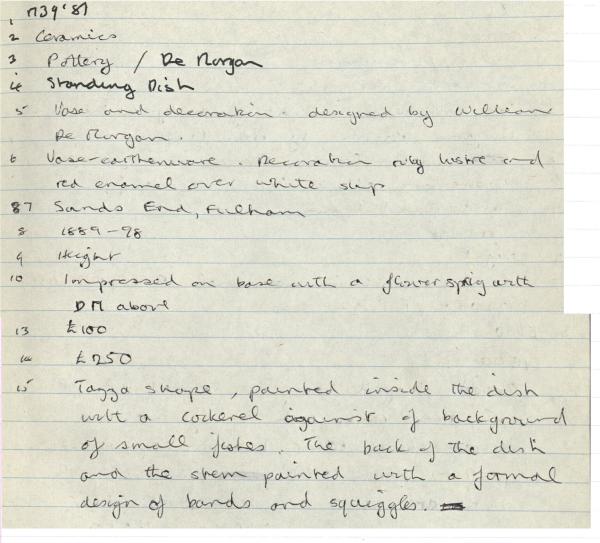 1 M39'87
2 Ceramics
3 Pottery / De Morgan
4 Standing Dish
5 Vase and decoration designed by William
De Morgan.
6 Vase-earthenware. Decoration ruby lustre and
red enamel over white slip
87 Sands End, Fulham
8 1889-98
9 Height
10 Impressed on base with a flower sprig with
DM above
13 £100
14 £250
15 Tazza shape, painted inside the dish
with a cockerel against of background
of small fishes. The back of the dish
and the stem painted with a formal
design of bands and squiggles.